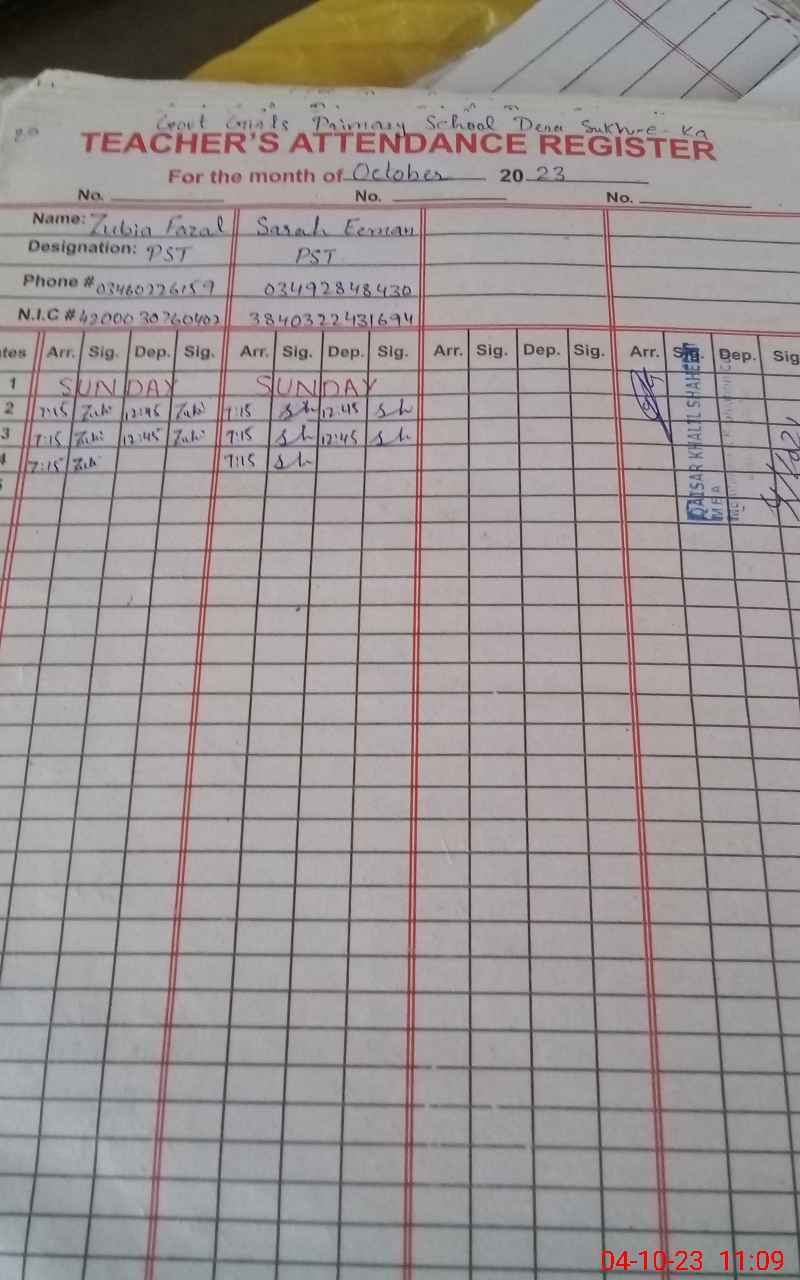 20
Govt Girls Primary School Dera Sukhre-Ka
TEACHER'S ATTENDANCE REGISTER
For the month of October 2023
No. No. No.
Name: Zubia Fazal Sarah Eeman
Designation: PST PST
Phone # 03460226159 03492848430
N.I.C # 4200030760402 3840322431694
ates Arr. Sig. Dep. Sig. Arr. Sig. Dep. Sig. Arr. Sig. Dep. Sig. Arr. Sig. Dep. Sig
1 SUNDAY SUNDAY
2 7:15 Zubi 12:45 Zubi 7:15 Sh 12:45 Sh
3 7:15 Zubi 12:45 Zubi 7:15 Sh 12:45 Sh
4 7:15 Zubi 7:15 Sh
QAISAR KHALIL SHAHEEN
MEA
04-10-23 11:09